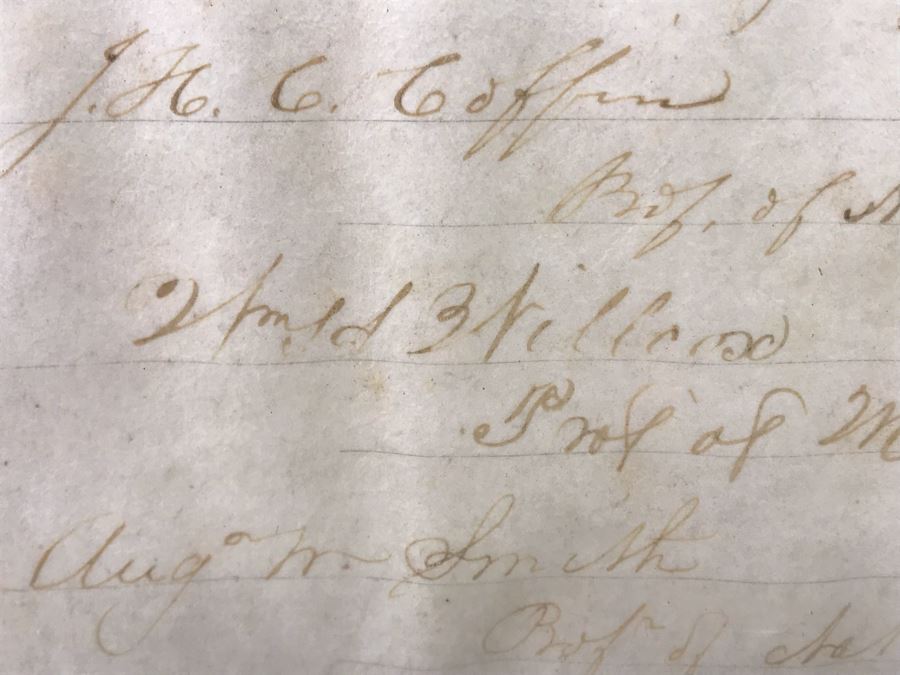 J. H. C. Coffin
Prof. of
Willcox
Prof of M
Aug° W Smith
Prof^r of Nat